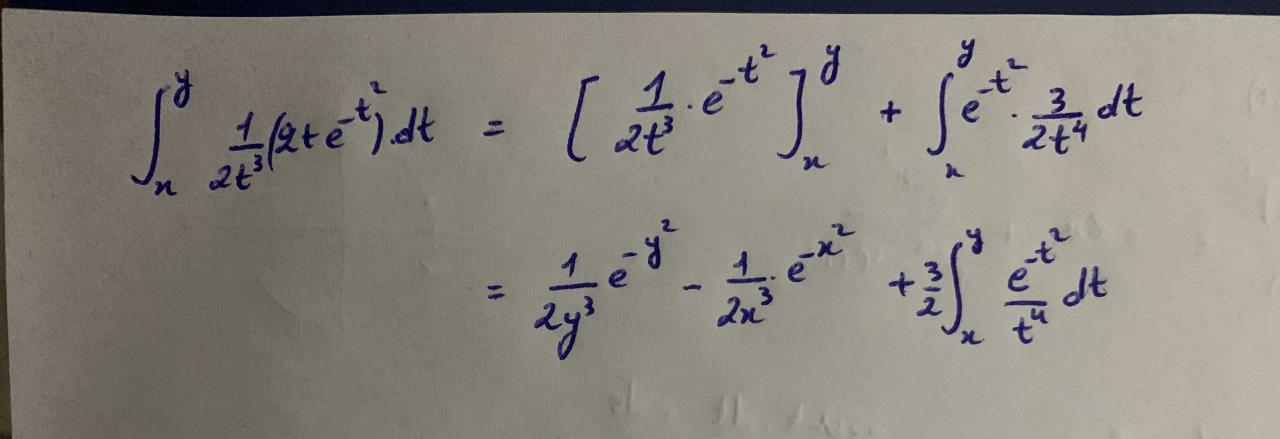 ∫_x^y 1/(2t³) (2t e^(-t²)).dt = [ 1/(2t³) · e^(-t²) ]_x^y + ∫_x^y e^(-t²) · 3/(2t⁴) dt
= 1/(2y³) e^(-y²) - 1/(2x³) · e^(-x²) + 3/2 ∫_x^y e^(-t²)/t⁴ dt